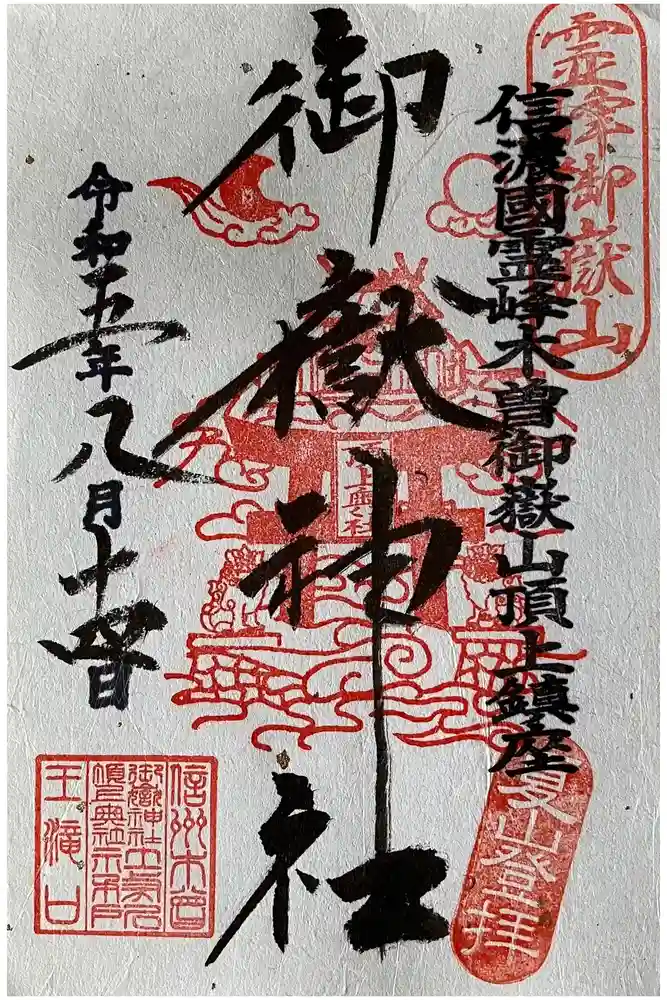 霊峯御嶽山
信濃國霊峰木曽御嶽山頂上鎮座
御嶽神社
頂上奥社
令和五年八月十四日
夏山登拝
信州木曽
御嶽神社
王滝口